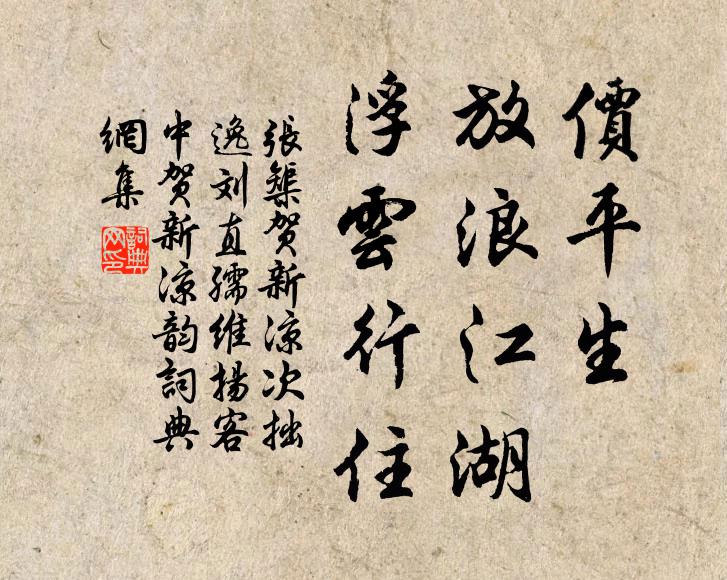 價平生
放浪江湖
浮雲行住
張榘贺新凉次拙
逸刘直孺维揚客
中贺新凉韵詞典
網集
詞典
网印